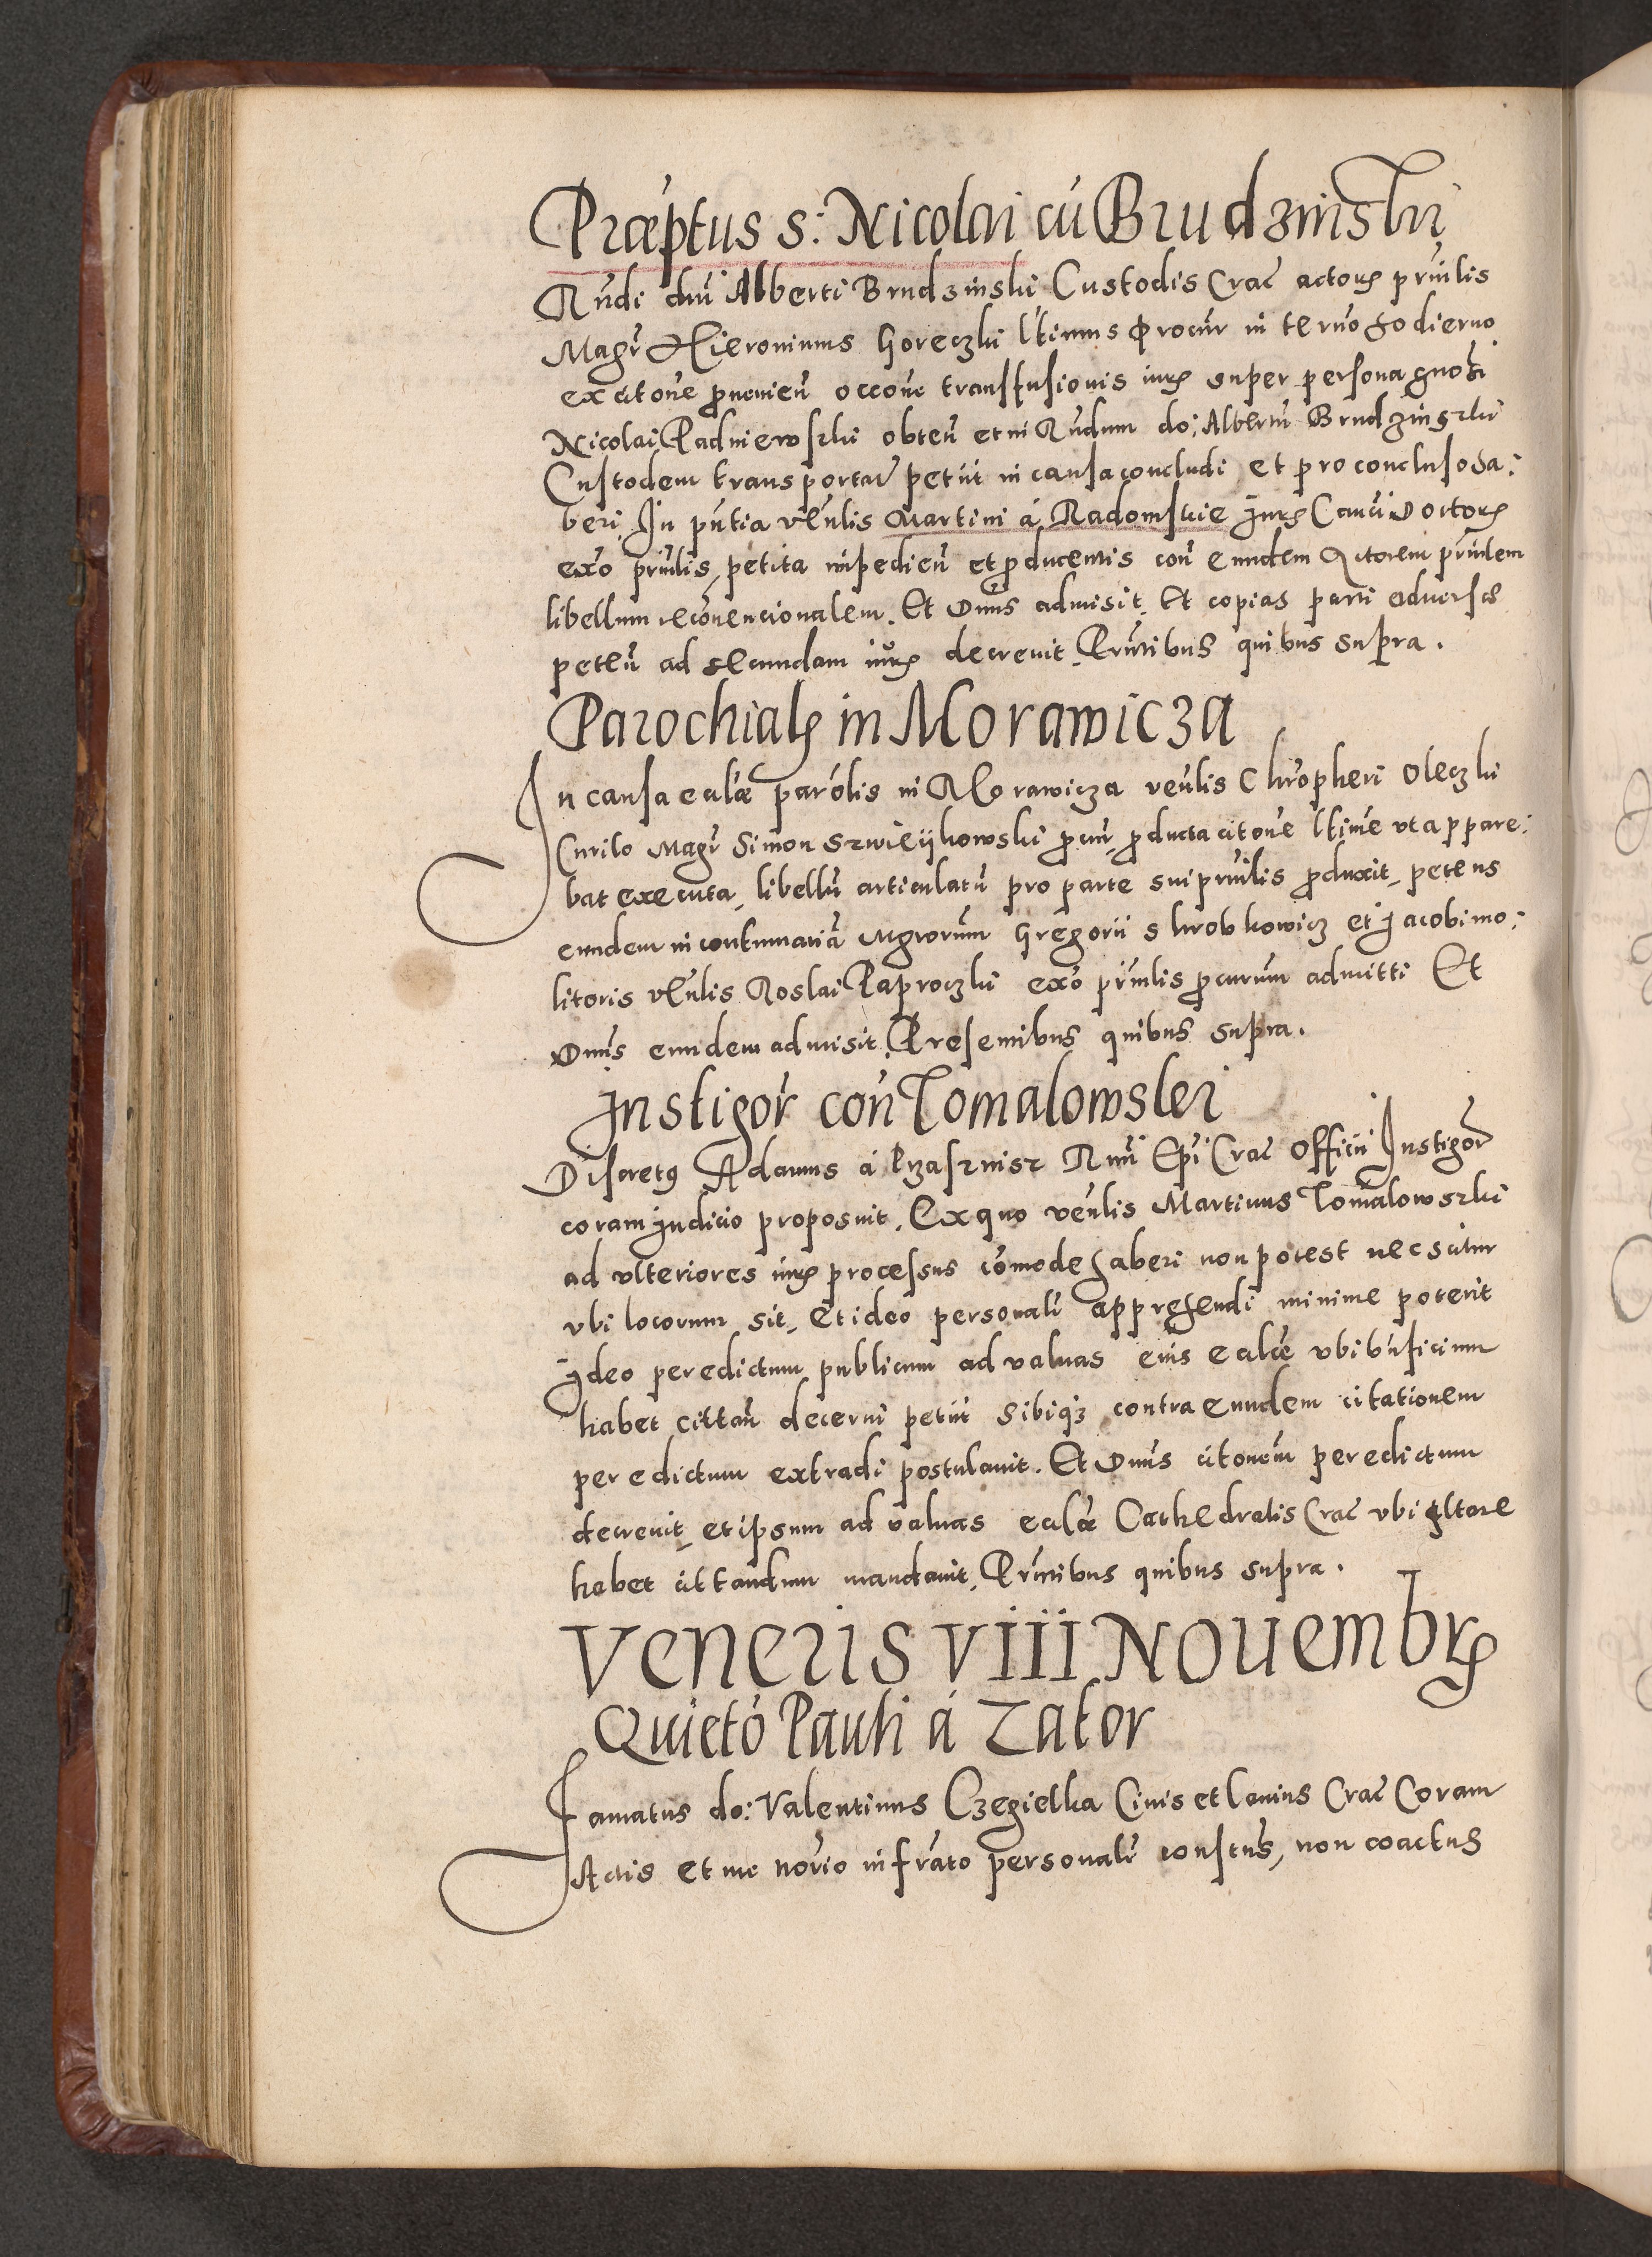 Præptus s: Nicolai cũ Brudzinski
Rũdi dnĩ Alberti Brudzinski Custodis Crac̃ actoris prñlis
Magr̃ Hieronimus Goreczki ltimus procur̃ in terño hodierno
ex citoñe proueniẽn occoñe transfusionis iuris super persona gnosi
Nicolai Padniewszki obteñ et in Rũdum do: Albertũ Brudzinszki
Custodem transportat̃ petiit in causa concludi et pro conclusa ha:
beri. In pñtia vẽnlis Martini á Radomskie Juris Canci Doctoris
exõ prñlis, petita impedieñ et producentis coñ eundem Actorem prñlem
libellum recõnencionalem. Et Dnũs admisit. Et copias parti aduersæ
peteñ ad secundam iuris decreuit. Pr̃ntibus quibus supra.
Parochialis in Morawicza
In causa ecclæ parõlis in Morawicza veñlis Chrõpheri Oleczki
Curilo Magr̃ Simon Szwieijkowski procur̃, producta citoñe ltime vt appare:
bat executa, libellũ articulatũ pro parte sui prñlis produxit, petens
eundem in contumaciã Mgrorum Gregorii Skrobkowicz et Jacobi mo:
litoris vẽnlis Roslai Paproczki exõ prñlis procurum admitti Et
Dnũs eundem admisit. Presentibus quibus supra.
Instigor̃ coñ Tomalowski
Discretus Adamus á Przasznisz Rmĩ Epĩ Crac̃ Officii Instigor̃
coram Judicio proposuit. Ex quo veñlis Martinus Tomalowszki
ad vlteriores iuris processus cõmode haberi non potest nec scitur
vbi locorum sit, Et ideo personalr̃ apprehendi minime poterit
Jdeo per edictum publicum ad valuas eius ecclæ vbi bñficium
habet cittañ decerni petiit sibiq; contra eundem citationem
per edictum extradi postulauit. Et Dnũs citoñem per edictum
decreuit, et ipsum ad valuas ecclæ Cathedralis Crac̃ vbi altare
habet cittandum mandauit. Pr̃ntibus quibus supra.
Veneris VIII Nouembris
Quietõ Pauli á Zator
Famatus do: Valentinus Czegielka Ciuis et lanius Crac̃ Coram
Actis et me noriõ infrãto personalr̃ constus̃, non coactus